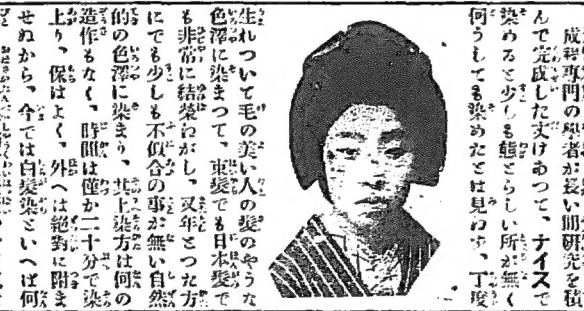 專門の學者が長い間研究を積
んで完成した丈けあつて、ナイスで
染めると少しも態とらしい所が無く
何うしても染めたとは見えず、丁度
生れついて毛の美い人の髮のやうな
色澤に染まつて、束髮でも日本髮で
も非常に結榮えがし、又年とつた方
にでも少しも不似合の事が無い自然
的の色澤に染まり、其上染方は何の
造作もなく、時間は僅か二十分で染
上り、保はよく、外へは絕對に附ま
せぬから、今では白髮染といへば何